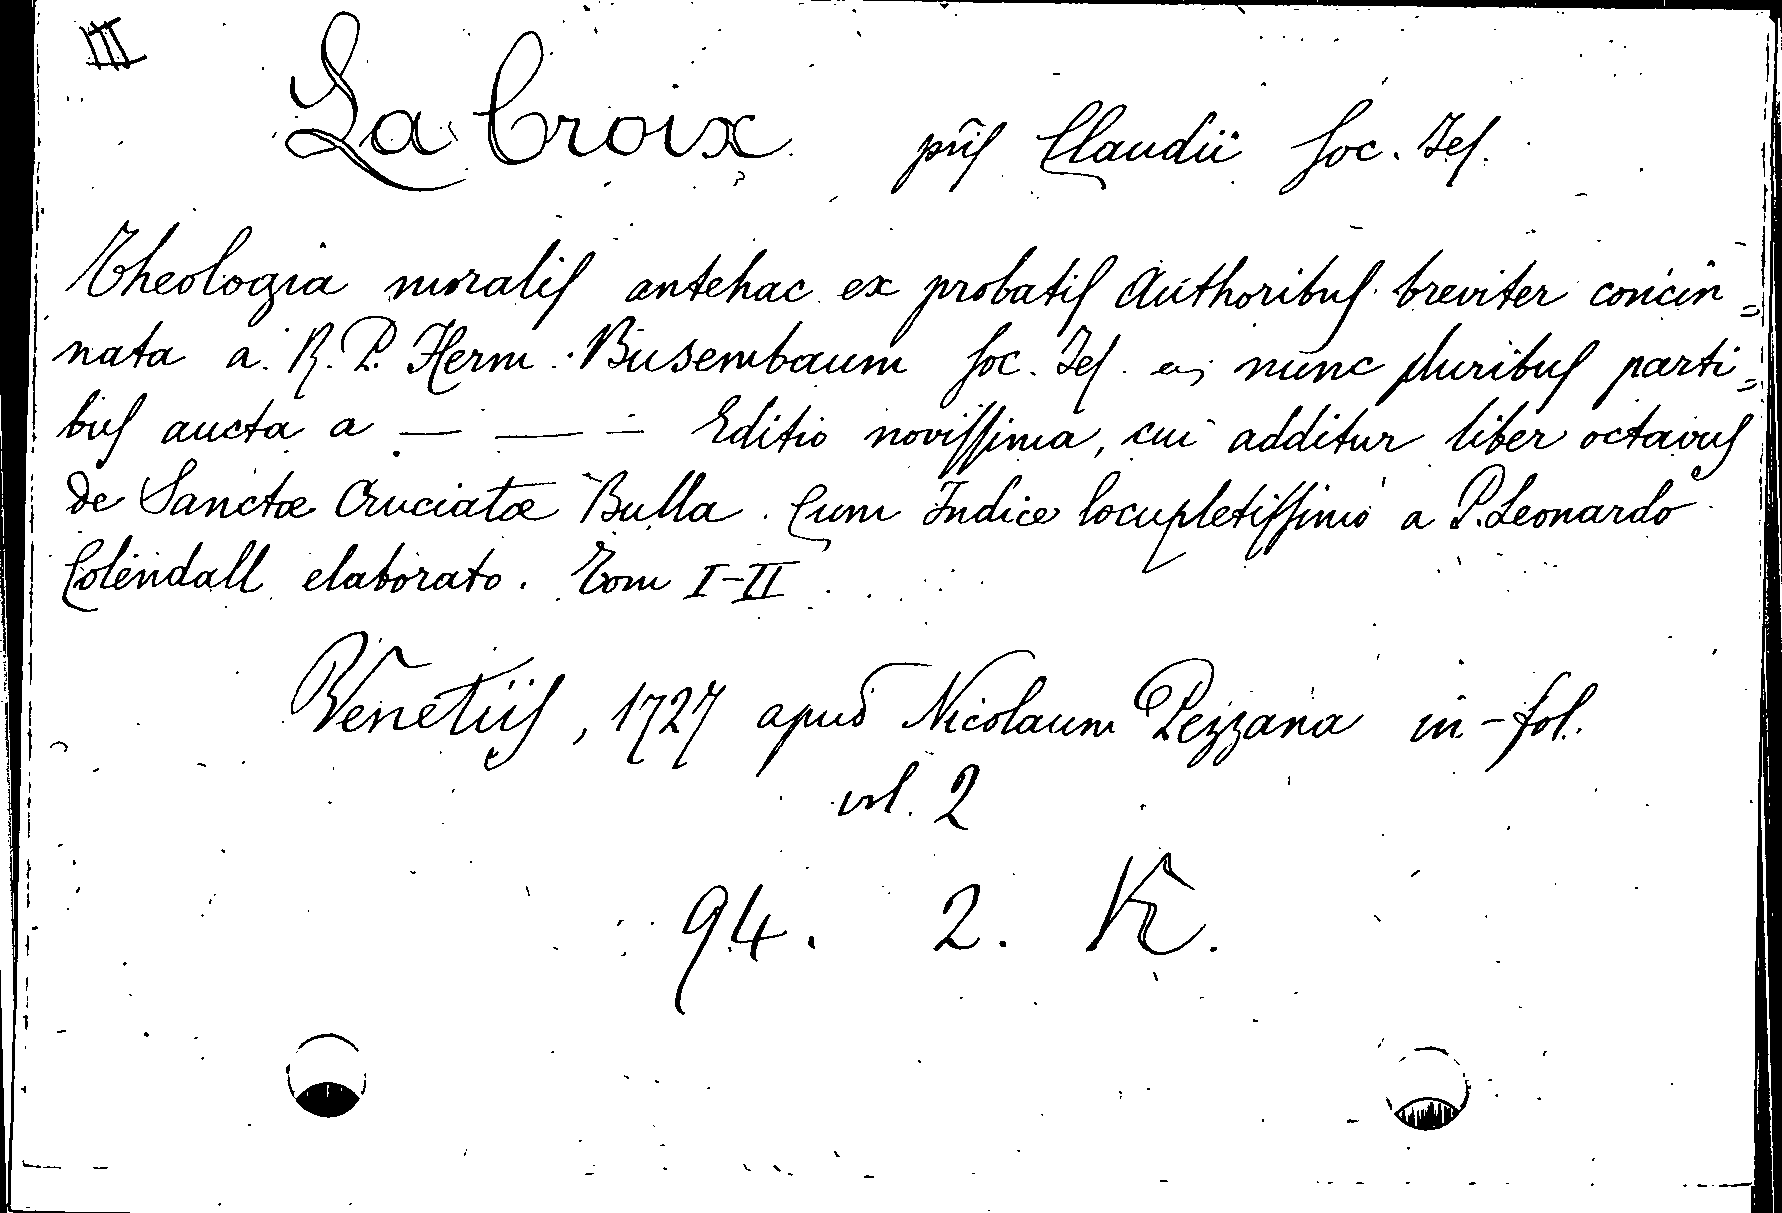 III
La Croix pris Claudii Soc. Jes.
Theologia moralis antehac ex probatis Authoribus breviter concin=
nata a. R. P. Herm. Busembaum Soc. Jes. nunc pluribus parti=
bus aucta a — — — Editio novissima, cui additur liber octavus
de Sanctæ Cruciatæ Bulla. Cum Indice locupletissimo a P. Leonardo
Colendall elaborato. Tom I-II
Venetiis, 1727 apud Nicolaum Pezzana in-fol.
vol. 2
94. 2. K.